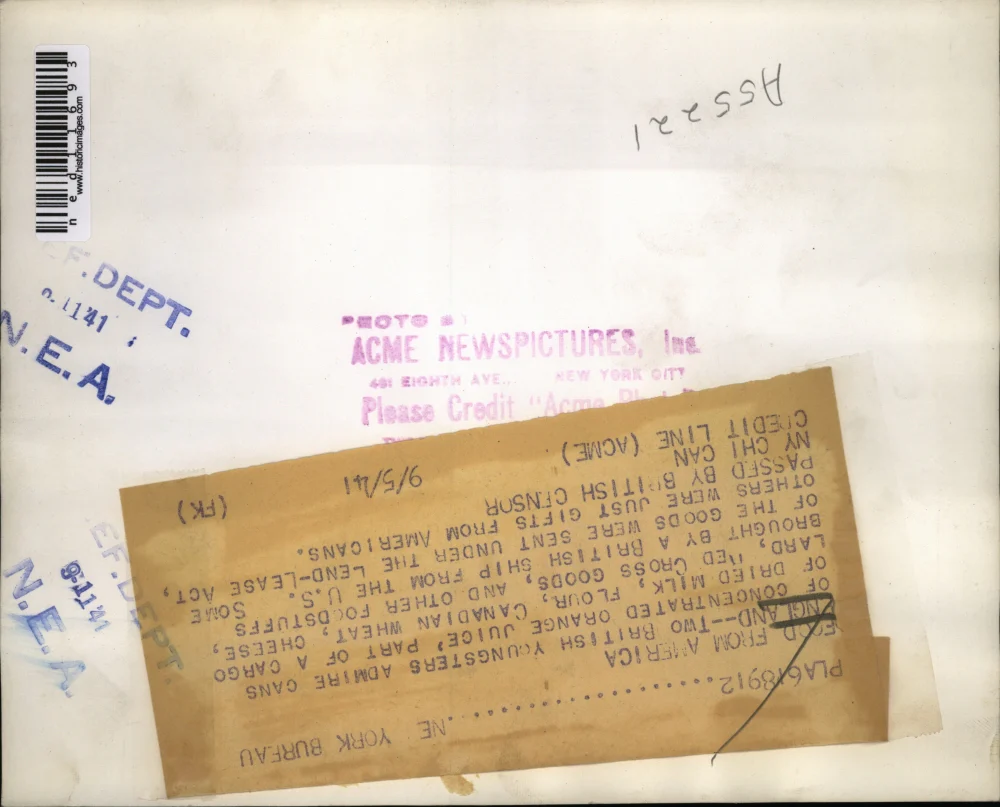 ned11693
www.historicimages.com
A55221
EF. DEPT.
9-11 '41
N. E. A.
PHOTO
ACME NEWSPICTURES, Inc.
461 EIGHTH AVE.. NEW YORK CITY
Please Credit "Acme
EF. DEPT
9-11 '41
N. E. A.
PLA618912....................NE YORK BUREAU
FOOD FROM AMERICA
ENGLAND---TWO BRITISH YOUNGSTERS ADMIRE CANS
OF CONCENTRATED ORANGE JUICE, PART OF A CARGO
OF DRIED MILK, FLOUR, CANADIAN WHEAT, CHEESE,
LARD, RED CROSS GOODS, AND OTHER FOODSTUFFS
BROUGHT BY A BRITISH SHIP FROM THE U.S. SOME
OF THE GOODS WERE SENT UNDER THE LEND-LEASE ACT,
OTHERS WERE JUST GIFTS FROM AMERICANS.
PASSED BY BRITISH CENSOR
NY CHI CAN
CREDIT LINE (ACME) 9/5/41 (FK)